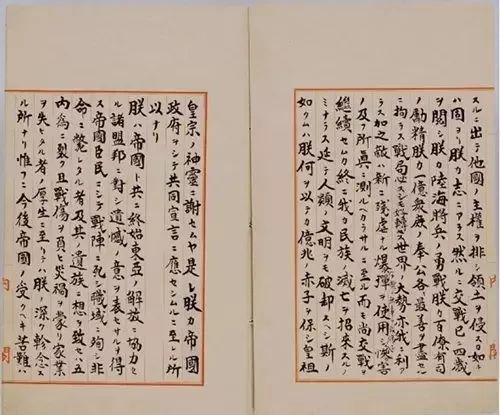 スルニ出テ他國ノ主權ヲ排シ領土ヲ侵スカ如キ
ハ固ヨリ朕カ志ニアラス然ルニ交戰已ニ四歳
ヲ閲シ朕カ陸海將兵ノ勇戰朕カ百僚有司
ノ勵精朕カ一億衆庶ノ奉公各最善ヲ盡セルニ
拘ラス戰局必スシモ好轉セス世界ノ大勢亦我ニ利ア
ラス加之敵ハ新ニ殘虐ナル爆彈ヲ使用シ慘害
ノ及フ所眞ニ測ルヘカラサルニ至ル而モ尚交戰ヲ
繼續セムカ終ニ我カ民族ノ滅亡ヲ招來スルノ
ミナラス延テ人類ノ文明ヲモ破却スヘシ斯ノ
如クムハ朕何ヲ以テカ億兆ノ赤子ヲ保シ皇祖
皇宗ノ神靈ニ謝セムヤ是レ朕カ帝國
政府ヲシテ共同宣言ニ應セシムルニ至レル所
以ナリ
朕ハ帝國ト共ニ終始東亞ノ解放ニ協力セ
ル諸盟邦ニ對シ遺憾ノ意ヲ表セサルヲ得
ス帝國臣民ニシテ戰陣ニ死シ職域ニ殉シ非
命ニ斃レタル者及其ノ遺族ニ想ヲ致セハ五
内爲ニ裂ク且戰傷ヲ負ヒ災禍ヲ蒙リ家業
ヲ失ヒタル者ノ厚生ニ至リテハ朕ノ深ク軫念ス
ル所ナリ惟フニ今後帝國ノ受クヘキ苦難ハ